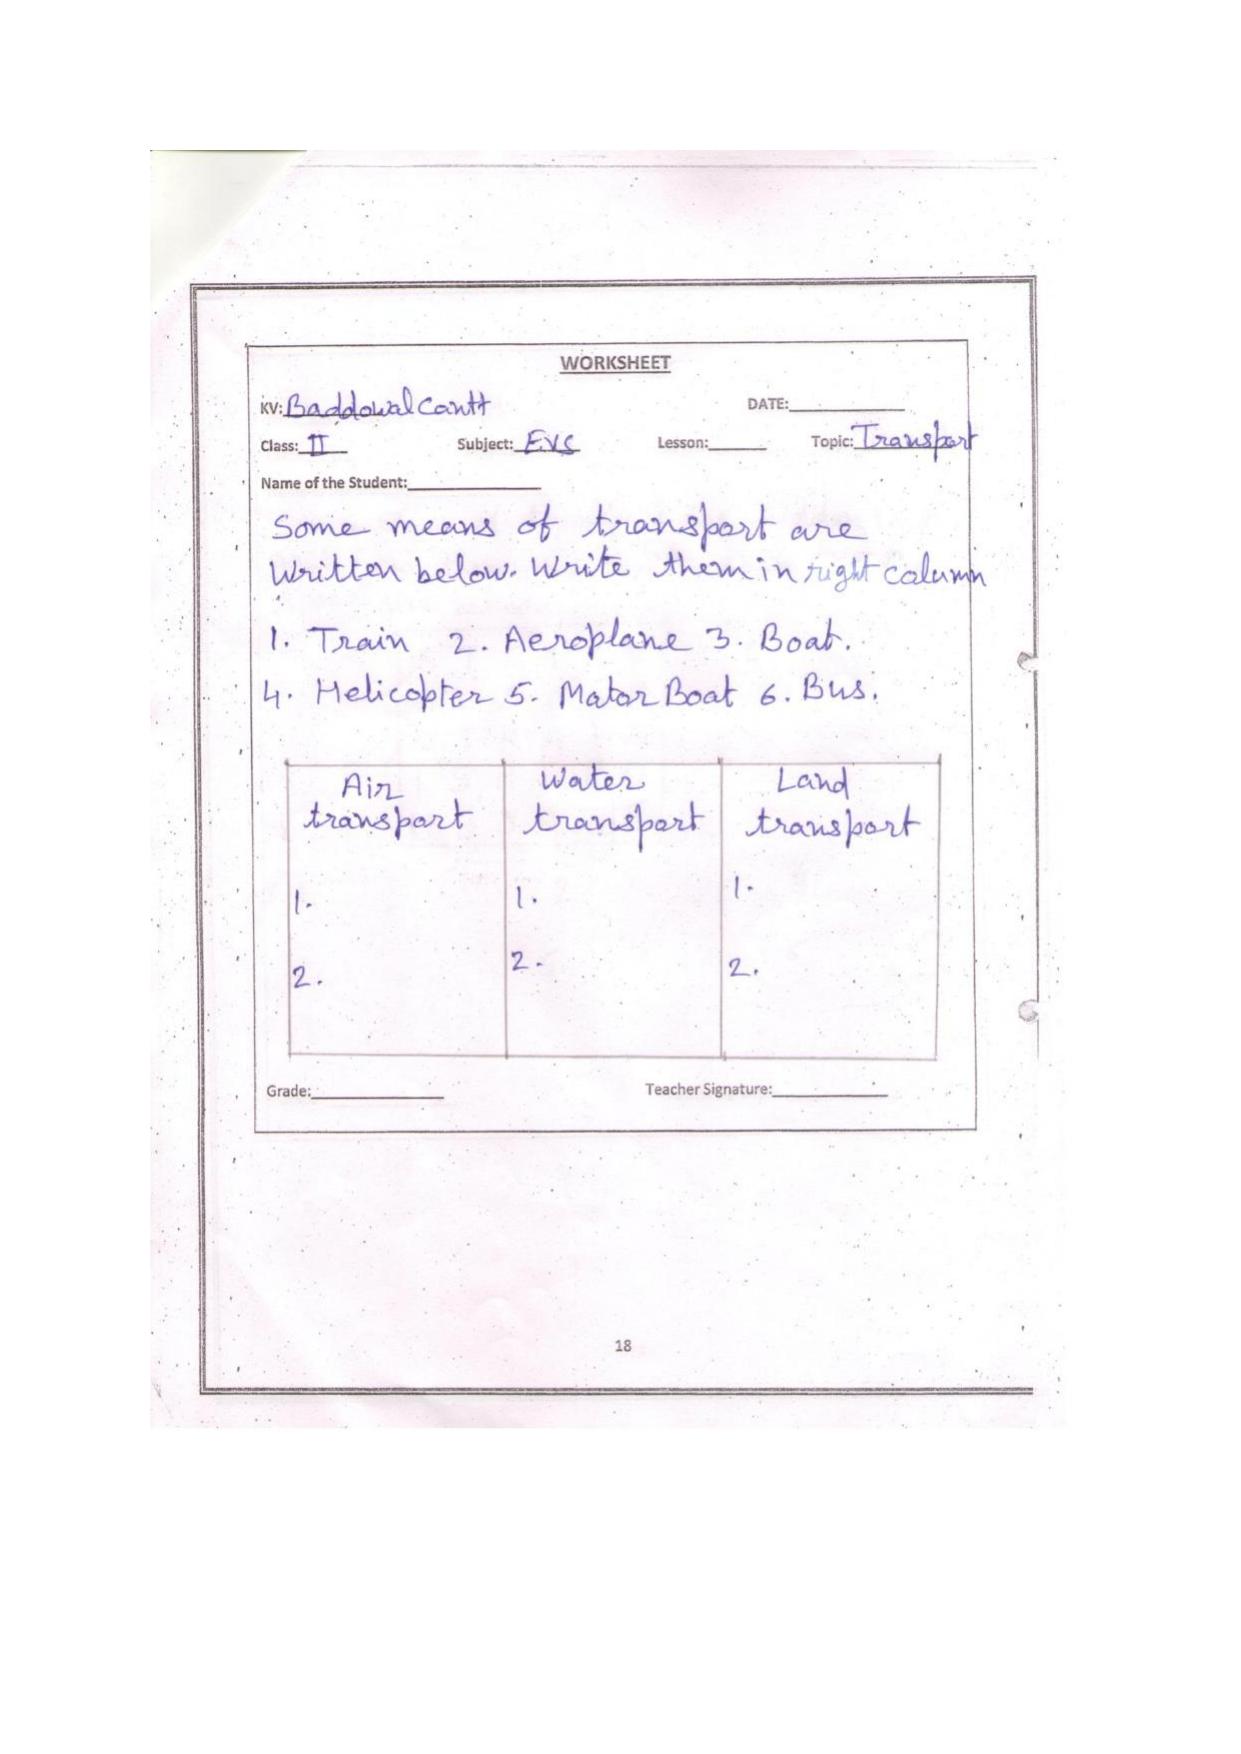 WORKSHEET
KV: Baddowal Cantt DATE:
Class: II Subject: E.V.S Lesson: Topic: Transport
Name of the Student:
Some means of transport are
Written below. Write them in right column
1. Train 2. Aeroplane 3. Boat.
4. Helicopter 5. Motor Boat 6. Bus.
Air transport Water transport Land transport
1. 1. 1.
2. 2. 2.
Grade: Teacher Signature:
18